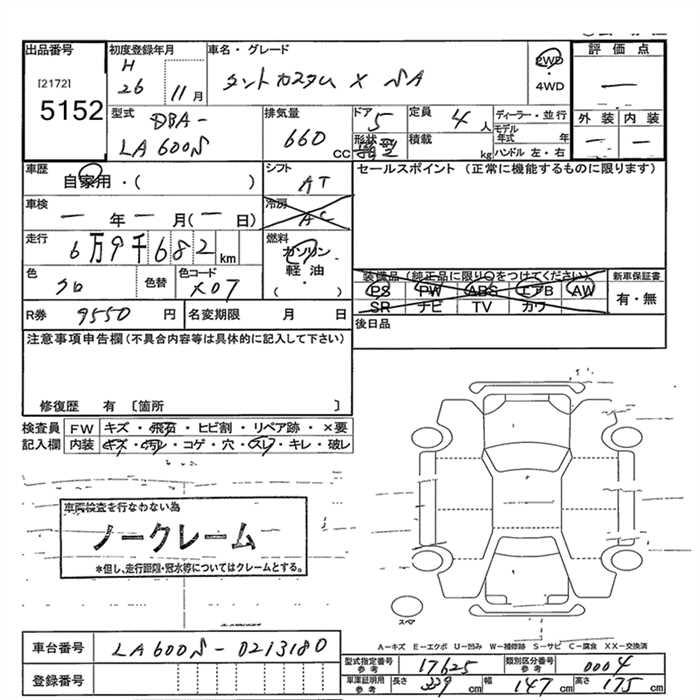 出品番号
[2172]
5152
初度登録年月
H
26 11月
車名・グレード
タントカスタム X SA
2WD
・
4WD
評価点
―
外装 内装
― ―
型式
DBA-
LA600S
排気量
660 CC
ドア 5
形状 箱型
定員 4 人
積載 kg
ディーラー・並行
モデル年式 年
ハンドル 左・右
車歴
自家用・( )
シフト
AT
車検
― 年 ― 月(― 日)
冷房
AC
走行
6万9千682 km
燃料
ガソリン
軽・油
・
( )
色
クロ
色替
色コード
X07
R券 9550 円
名変期限 月 日
セールスポイント (正常に機能するものに限ります)
装備品(純正品に限り○をつけてください)
PS PW ABS エアB AW
SR ナビ TV カワ
新車保証書
有・無
後日品
注意事項申告欄(不具合内容等は具体的に記入して下さい)
修復歴 有 〔箇所 〕
検査員 FW キズ・飛石・ヒビ割・リペア跡・×要
記入欄 内装 キズ・汚レ・コゲ・穴・スレ・キレ・破レ
車両検査を行なわない為
ノークレーム
*但し、走行距離・冠水等についてはクレームとする。
スペア
A-キズ E-エクボ U-凹み W-補修跡 S-サビ C-腐食 XX-交換済
車台番号 LA600S-0213180
登録番号
型式指定番号 参考 17625
類別区分番号 参考 0004
車庫証明用 参考 長さ 339 cm 幅 147 cm 高さ 175 cm